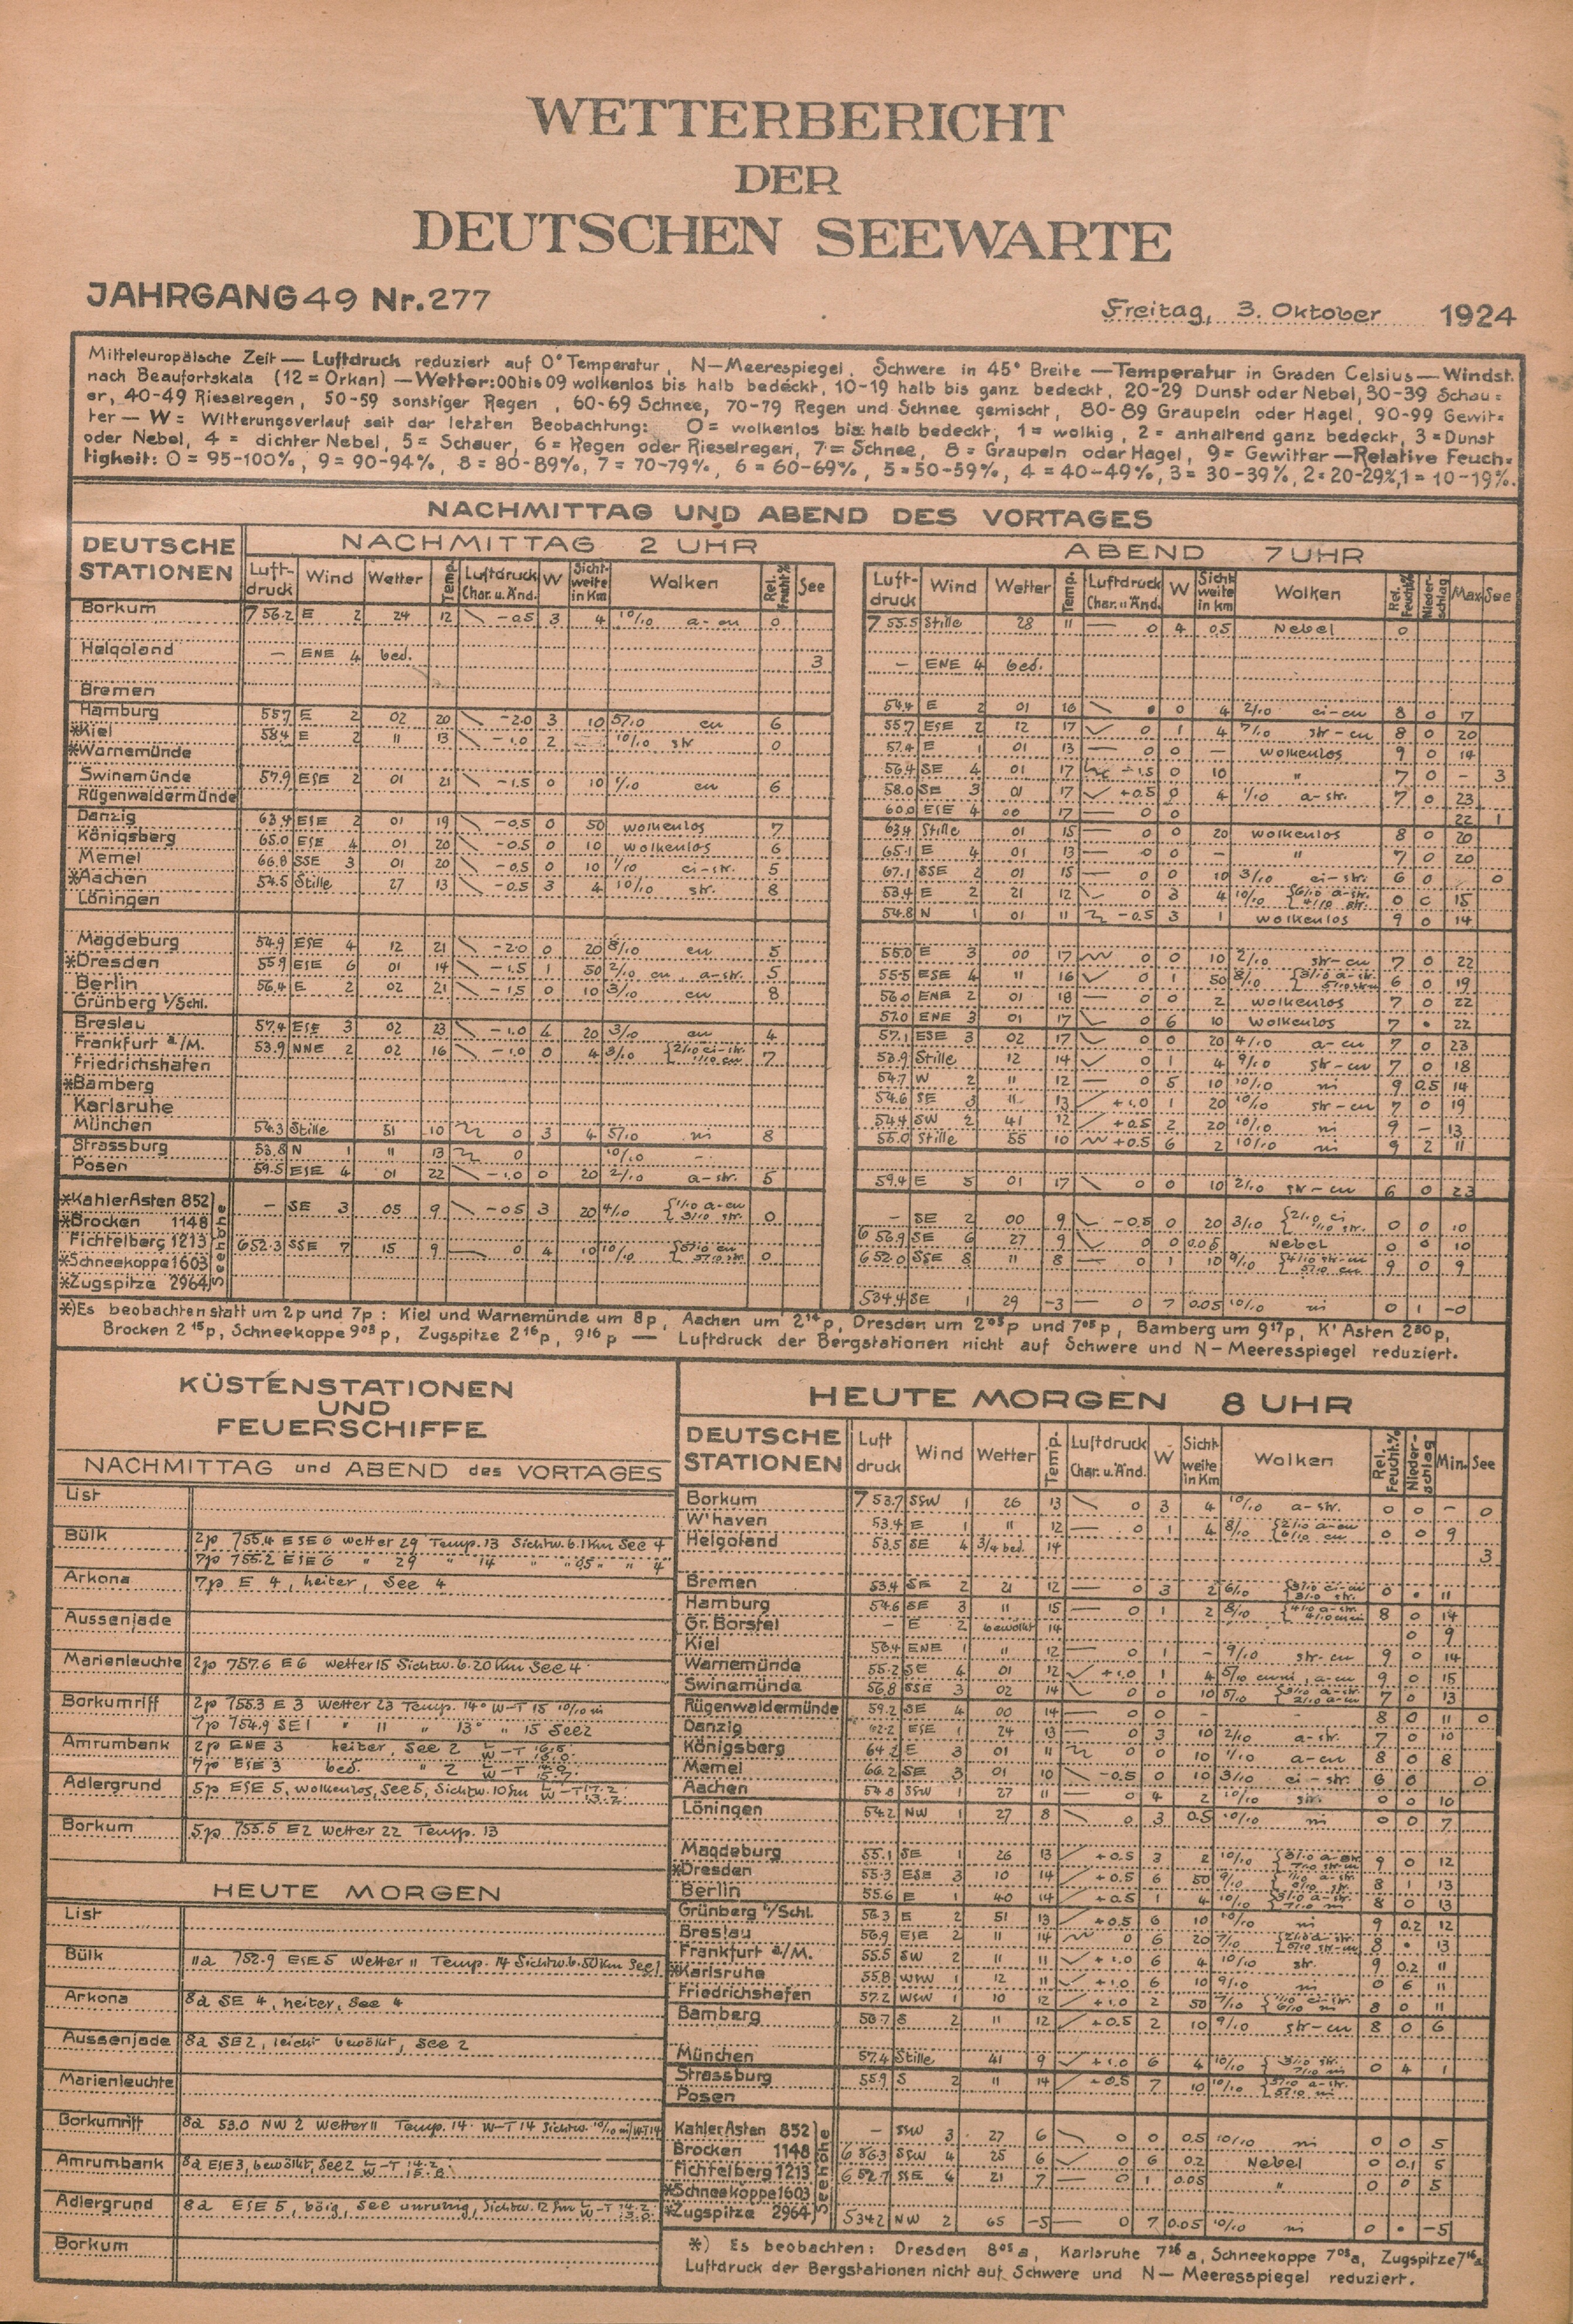 WETTERBERICHT
DER
DEUTSCHEN SEEWARTE
JAHRGANG 49 Nr. 277
Freitag, 3. Oktober 1924
Mitteleuropäische Zeit — Luftdruck reduziert auf 0° Temperatur, N—Meerespiegel. Schwere in 45° Breite — Temperatur in Graden Celsius — Windst.
nach Beaufortskala (12 = Orkan) — Wetter: 00 bis 09 wolkenlos bis halb bedeckt, 10-19 halb bis ganz bedeckt, 20-29 Dunst oder Nebel, 30-39 Schau=
er, 40-49 Rieselregen, 50-59 sonstiger Regen, 60-69 Schnee, 70-79 Regen und Schnee gemischt, 80-89 Graupeln oder Hagel, 90-99 Gewit=
ter — W = Witterungsverlauf seit der letzten Beobachtung: 0 = wolkenlos bis halb bedeckt, 1 = wolkig, 2 = anhaltend ganz bedeckt, 3 = Dunst
oder Nebel, 4 = dichter Nebel, 5 = Schauer, 6 = Regen oder Rieselregen, 7 = Schnee, 8 = Graupeln oder Hagel, 9 = Gewitter — Relative Feuch=
tigkeit: 0 = 95-100%, 9 = 90-94%, 8 = 80-89%, 7 = 70-79%, 6 = 60-69%, 5 = 50-59%, 4 = 40-49%, 3 = 30-39%, 2 = 20-29%, 1 = 10-19%.
NACHMITTAG UND ABEND DES VORTAGES
DEUTSCHE STATIONEN
NACHMITTAG 2 UHR
Luftdruck Wind Wetter Temp. Luftdruck Char. u. Änd. W Sichtweite in Km Wolken Rel. Feucht.% See
Borkum 756.2 E 2 24 12 -0.5 3 4 10/10 a-cu 0
Helgoland — ENE 4 bed. 3
Bremen
Hamburg 55.7 E 2 02 20 -2.0 3 10 5/10 cu 6
*Kiel 58.4 E 2 11 13 -1.0 2 10/10 str 0
*Warnemünde
Swinemünde 57.9 ESE 2 01 21 -1.5 0 10 1/10 cu 6
Rügenwaldermünde
Danzig 63.4 ESE 2 01 19 -0.5 0 50 wolkenlos 7
Königsberg 65.0 ESE 4 01 20 -0.5 0 10 wolkenlos 6
Memel 66.8 SSE 3 01 20 -0.5 0 10 1/10 ci-str. 5
*Aachen 54.5 Stille 27 13 -0.5 3 4 10/10 str. 8
Löningen
Magdeburg 54.9 ESE 4 12 21 -2.0 0 20 8/10 cu 5
*Dresden 55.9 ESE 6 01 14 -1.5 1 50 2/10 cu, a-str. 5
Berlin 56.4 E 2 02 21 -1.5 0 10 3/10 cu 8
Grünberg i/Schl.
Breslau 57.4 ESE 3 02 23 -1.0 4 20 3/10 cu 4
Frankfurt a/M. 53.9 NNE 2 02 16 -1.0 0 4 3/10 {2/10 ci-str. 1/10 cu 7
Friedrichshafen
*Bamberg
Karlsruhe
München 54.3 Stille 51 10 0 3 4 5/10 ni 8
Strassburg 53.8 N 1 11 13 0 10/10 -
Posen 59.5 ESE 4 01 22 -1.0 0 20 2/10 a-str. 5
Seehöhe
*Kahler Asten 852 — SE 3 05 9 -0.5 3 20 4/10 {1/10 a-cu 3/10 str. 0
*Brocken 1148
Fichtelberg 1213 652.3 SSE 7 15 9 0 4 10 10/10 {5/10 cu 5/10 str. 0
*Schneekoppe 1603
*Zugspitze 2964
ABEND 7 UHR
Luftdruck Wind Wetter Temp. Luftdruck Char. u. Änd. W Sichtweite in km Wolken Rel. Feucht% Niederschlag Max. See
755.5 Stille 28 11 — 0 4 0.5 Nebel 0
— ENE 4 bed.
54.4 E 2 01 16 0 4 2/10 ci-cu 8 0 17
55.7 ESE 2 12 17 0 1 4 7/10 str-cu 8 0 20
57.4 E 1 01 13 — 0 0 — wolkenlos 9 0 14
56.4 SE 4 01 17 -1.5 0 10 " 7 0 - 3
58.0 SE 3 01 17 +0.5 0 4 1/10 a-str. 7 0 23
60.0 ESE 4 00 17 — 0 0 22 1
63.4 Stille 01 15 — 0 0 20 wolkenlos 8 0 20
65.1 E 4 01 13 — 0 0 — " 7 0 20
67.1 SSE 2 01 15 — 0 0 10 3/10 ci-str. 6 0 0
53.4 E 2 21 12 0 3 4 10/10 {6/10 a-str. 4/10 str. 0 0 15
54.8 N 1 01 11 -0.5 3 1 wolkenlos 9 0 14
55.0 E 3 00 17 0 0 10 2/10 str-cu 7 0 22
55.5 ESE 4 11 16 0 1 50 8/10 {3/10 a-str. 5/10 str-cu 6 0 19
56.0 ENE 2 01 18 — 0 0 2 wolkenlos 7 0 22
57.0 ENE 3 01 17 0 6 10 wolkenlos 7 • 22
57.1 ESE 3 02 17 0 0 20 4/10 a-cu 7 0 23
53.9 Stille 12 14 0 1 4 9/10 str-cu 7 0 18
54.7 W 2 11 12 — 0 5 10 10/10 ni 9 0.5 14
54.6 SE 3 11 13 +1.0 1 20 10/10 str-cu 7 0 19
54.4 SW 2 41 12 +0.5 2 20 10/10 ni 9 - 13
55.0 Stille 55 10 +0.5 6 2 10/10 ni 9 2 11
59.4 E 5 01 17 0 0 10 2/10 str-cu 6 0 23
— SE 2 00 9 -0.5 0 20 3/10 {2/10 ci 1/10 str. 0 0 10
656.9 SE 6 27 9 0 0 0.05 Nebel 0 0 10
652.0 SSE 8 11 8 — 0 1 10 9/10 {4/10 str-cu 5/10 cu 9 0 9
534.4 SE 1 29 -3 — 0 7 0.05 10/10 ni 0 1 -0
*) Es beobachten statt um 2p und 7p: Kiel und Warnemünde um 8p, Aachen um 2¹⁴p, Dresden um 2⁰⁵p und 7⁰⁵p, Bamberg um 9¹⁷p, K' Asten 2³⁰p,
Brocken 2¹⁵p, Schneekoppe 9⁰³p, Zugspitze 2¹⁶p, 9¹⁶p — Luftdruck der Bergstationen nicht auf Schwere und N—Meeresspiegel reduziert.
KÜSTENSTATIONEN
UND
FEUERSCHIFFE
NACHMITTAG und ABEND des VORTAGES
List
Bülk 2p 755.4 ESE 6 Wetter 29 Temp. 13 Sichtw. 6.1 Km See 4
7p 755.2 ESE 6 " 29 " 14 " " 05 " " 4
Arkona 7p E 4, heiter, See 4
Aussenjade
Marienleuchte 2p 757.6 E 6 Wetter 15 Sichtw. 6. 20 Km See 4
Borkumriff 2p 755.3 E 3 Wetter 23 Temp. 14° W-T 15 10/10 ni
7p 754.9 SE 1 " 11 " 13° " 15 See 2
Amrumbank 2p ENE 3 heiter, See 2 L/W-T
7p ESE 3 bed. " 2 L/W-T
Adlergrund 5p ESE 5, wolkenlos, See 5, Sichtw. 10 Km L/W-T 17.2 13.2
Borkum 5p 755.5 E 2 Wetter 22 Temp. 13
HEUTE MORGEN
List
Bülk 11a 752.9 ESE 5 Wetter 11 Temp. 14 Sichtw. 6. 50 Km See 1
Arkona 8a SE 4, heiter, See 4
Aussenjade 8a SE 2, leicht bewölkt, See 2
Marienleuchte
Borkumriff 8a 53.0 NW 2 Wetter 11 Temp. 14 W-T 14 Sichtw. 10/10 ni
Amrumbank 8a ESE 3, bewölkt, See 2 L/W-T
Adlergrund 8a ESE 5, böig, See unruhig, Sichtw. 12 Km L/W-T
Borkum
HEUTE MORGEN 8 UHR
DEUTSCHE STATIONEN Luftdruck Wind Wetter Temp. Luftdruck Char. u. Änd. W Sichtweite in Km Wolken Rel. Feucht.% Niederschlag Min. See
Borkum 753.7 SSW 1 26 13 0 3 4 10/10 a-str. 0 0 - 0
W'haven 53.4 E 1 11 12 — 0 1 4 8/10 {2/10 a-cu 6/10 cu 0 0 9
Helgoland 53.5 SE 4 3/4 bed. 14 3
Bremen 53.4 SE 2 21 12 — 0 3 2 6/10 {3/10 ci-cu 3/10 str. 0 • 11
Hamburg 54.6 SE 3 11 15 — 0 1 2 8/10 {4/10 a-str. 8 0 14
Gr. Borstel — E 2 bewölkt 14 0 9
Kiel 56.4 ENE 1 11 12 — 0 1 - 9/10 str-cu 9 0 14
Warnemünde 55.2 SE 4 01 12 +1.0 1 4 5/10 cuni, a-cu 9 0 15
Swinemünde 56.8 SSE 3 02 14 0 0 10 5/10 {3/10 a-str. 2/10 a-cu 7 0 13
Rügenwaldermünde 59.2 SE 4 00 14 — 0 0 - - 8 0 11 0
Danzig 62.2 ESE 1 24 13 — 0 3 10 2/10 a-str. 7 0 10
Königsberg 64.2 E 3 01 11 0 0 10 1/10 a-cu 8 0 8
Memel 66.2 SE 3 01 10 -0.5 0 10 3/10 ci-str. 6 0 0
Aachen 54.8 SSW 1 27 11 — 0 4 2 10/10 str. 0 0 10
Löningen 54.2 NW 1 27 8 0 3 0.5 10/10 ni 0 0 7
Magdeburg 55.1 SE 1 26 13 +0.5 3 2 10/10 {3/10 a-str. 7/10 str-cu 9 0 12
*Dresden 55.3 ESE 3 10 14 +0.5 6 50 9/10 {1/10 a-str. 8/10 str. 8 1 13
Berlin 55.6 E 1 40 14 +0.5 1 4 10/10 {3/10 a-str. 7/10 ni 8 0 13
Grünberg i/Schl. 56.3 E 2 51 13 +0.5 6 10 10/10 ni 9 0.2 12
Breslau 56.9 ESE 2 11 14 0 6 20 7/10 {2/10 a-str. 8 • 13
Frankfurt a/M. 55.5 SW 2 11 11 +1.0 6 4 10/10 str. 9 0.2 11
*Karlsruhe 55.8 WSW 1 12 11 +1.0 6 10 9/10 ni 0 6 11
Friedrichshafen 57.2 WSW 1 10 12 +1.0 2 50 7/10 {1/10 ci-str. 6/10 ni 8 0 11
Bamberg 56.7 S 2 11 12 +0.5 2 10 9/10 str-cu 8 0 6
München 57.4 Stille 41 9 +1.0 6 4 10/10 {3/10 str. 7/10 ni 0 4 1
Strassburg 55.9 S 2 11 14 +0.5 7 10 10/10 {5/10 a-str. 5/10 ni
Posen
Seehöhe
Kahler Asten 852 — SSW 3 27 6 0 0 0.5 10/10 ni 0 0 5
Brocken 1148 656.3 SSW 4 25 6 0 6 0.2 Nebel 0 0.1 5
Fichtelberg 1213 652.7 SSE 4 21 7 — 0 1 0.05 " 0 0 5
*Schneekoppe 1603
*Zugspitze 2964 534.2 NW 2 65 -5 — 0 7 0.05 10/10 ni 0 • -5
*) Es beobachten: Dresden 8⁰⁵a, Karlsruhe 7²⁶a, Schneekoppe 7⁰³a, Zugspitze 7¹⁶a
Luftdruck der Bergstationen nicht auf Schwere und N—Meeresspiegel reduziert.